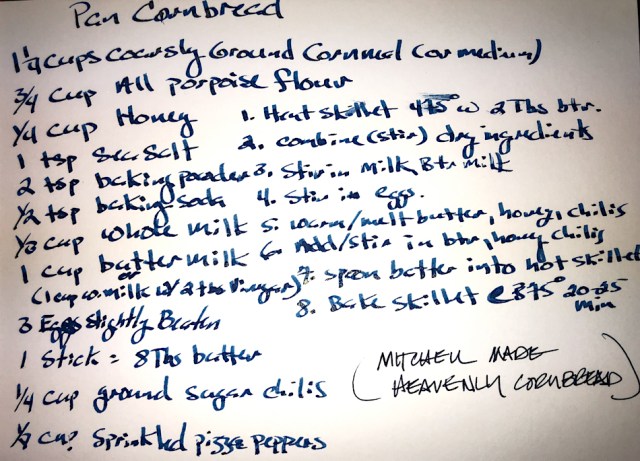 Pan Cornbread
1 1/4 cups coarsly Ground Cornmeal (or medium)
3/4 cup All porpoise flour
1/4 cup Honey
1 tsp Sea Salt
2 tsp baking powder
1/2 tsp baking soda
1/3 cup whole milk
1 cup butter milk
or
(1 cup w. milk w/ 2 tbs Vinegar)
3 Eggs slightly Beaten
1 Stick = 8 Tbs butter
1/4 cup ground sugar chilis
cup Sprinkled pizza peppers
1. Heat skillet 475° w 2 Tbs btr.
2. combine (stir) dry ingredients
3. Stir in Milk, Btr milk
4. Stir in eggs.
5. warm/melt butter, honey, chilis
6. Add/stir in btr, honey chilis
7. spoon batter into hot skillet
8. Bake skillet @ 375° 20-25
min
(MITCHELL MADE
HEAVENLY CORNBREAD)